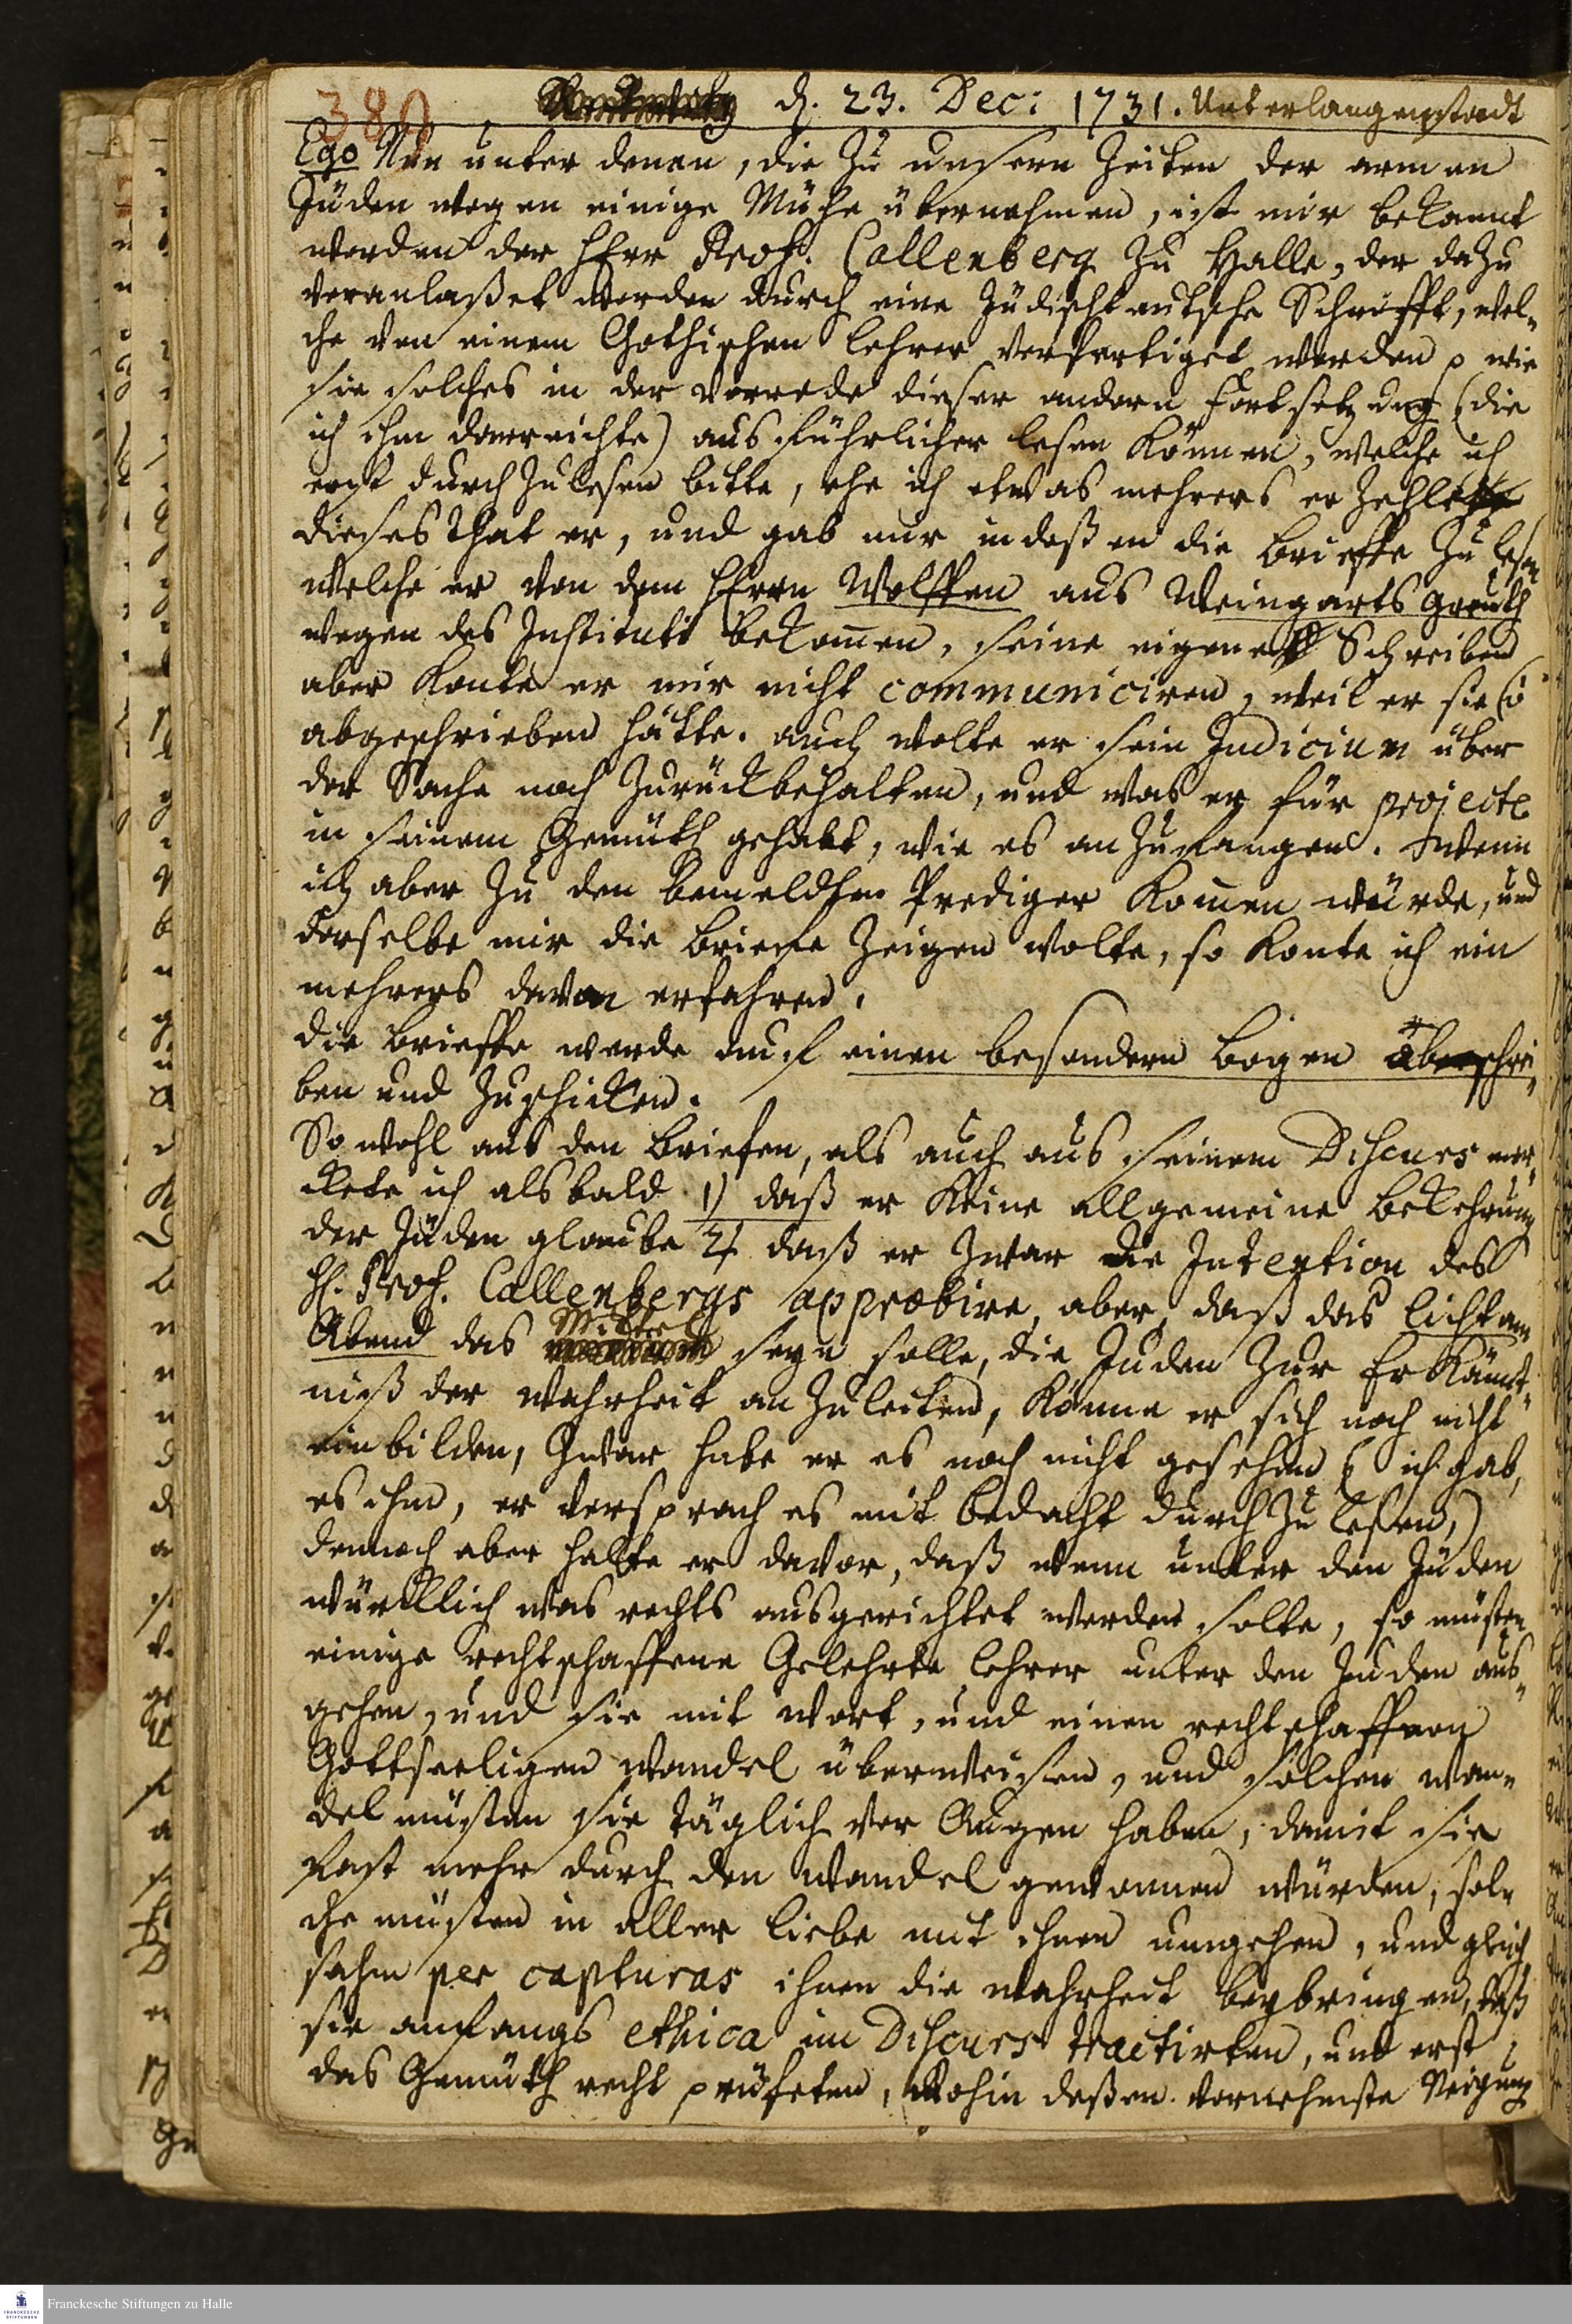 380
d. 23. Dec: 1731. Unterlangenstadt
Ego Nun unter denen, die zu unsern Zeiten der armen
Jüden wegen einige Mühe übernehmen, ist mir bekannt
worden der Herr Prof. Callenberg zu Halle, der dazu
veranlaßet worden durch eine Jüdischteutsche Schrifft, wel-
che von einem Gothischen Lehrer verfertiget worden, wie
sie solches in der Vorrede dieser andern Fortsetzung (die
ich ihm darreichte) ausführlicher lesen können, welche ich
erst durchzulesen bitte, ehe ich etwas mehrers erzehle
dieses that er, und gab mir indeßen die Brieffe zu lesen
welche er von dem Herrn Wolffen aus Weingartsgreuth
wegen des Instituti bekom̄en, seine eigene Schreiben
aber konte er mir nicht communiciren, weil er sie
abgeschrieben hätte. auch wolte er sein Judicium über
der Sache noch zurückbehalten, und was er für projecte
in seinem Gemüth gehabt, wie es anzufangen. Wenn
ich aber zu den bemeldten Prediger kom̄en würde, und
derselbe mir die Briefe zeigen wolte, so konte ich ein
mehrers davon erfahren.
die Brieffe werde auf einen besondern Bogen abschrei-
ben und zuschicken.
So wohl aus den Briefen, als auch aus seinem Discurs mer-
ckete ich alsbald 1) daß er keine allgemeine Bekehrung
der Jüden glaube 2) daß er zwar die Intention des
H. Prof. Callenbergs approbire, aber, daß das Licht am
Abend das Mittel seyn solle, die Juden zur Erkännt-
niß der Wahrheit anzuleiten, könne er sich noch nicht
einbilden, Zwar habe er es noch nicht gesehen (ich gab
es ihm, er versprach es mit bedacht durchzulesen,)
dennoch aber halte er davor, daß wenn unter den Jüden
würcklich was rechts ausgerichtet werden solte, so müsten
einige rechtschaffene Gelehrte Lehrer unter den Juden aus-
gehen, und sie mit Wort, und einen rechtschaffenen
Gottseeligen Wandel überweisen, und solchen Wan-
del müsten sie täglich vor Augen haben, damit sie
fast mehr durch den Wandel gewonnen würden, sol-
che müsten in aller Liebe mit ihnen umgehen, und gleich
sahm per capturas ihnen die Wahrheit beybringen, daß
sie anfangs ethica im Discurs tractirten, und erst
das Gemüth recht prüfeten, wohin deßen vornehmste Neigung
Franckesche Stiftungen zu Halle